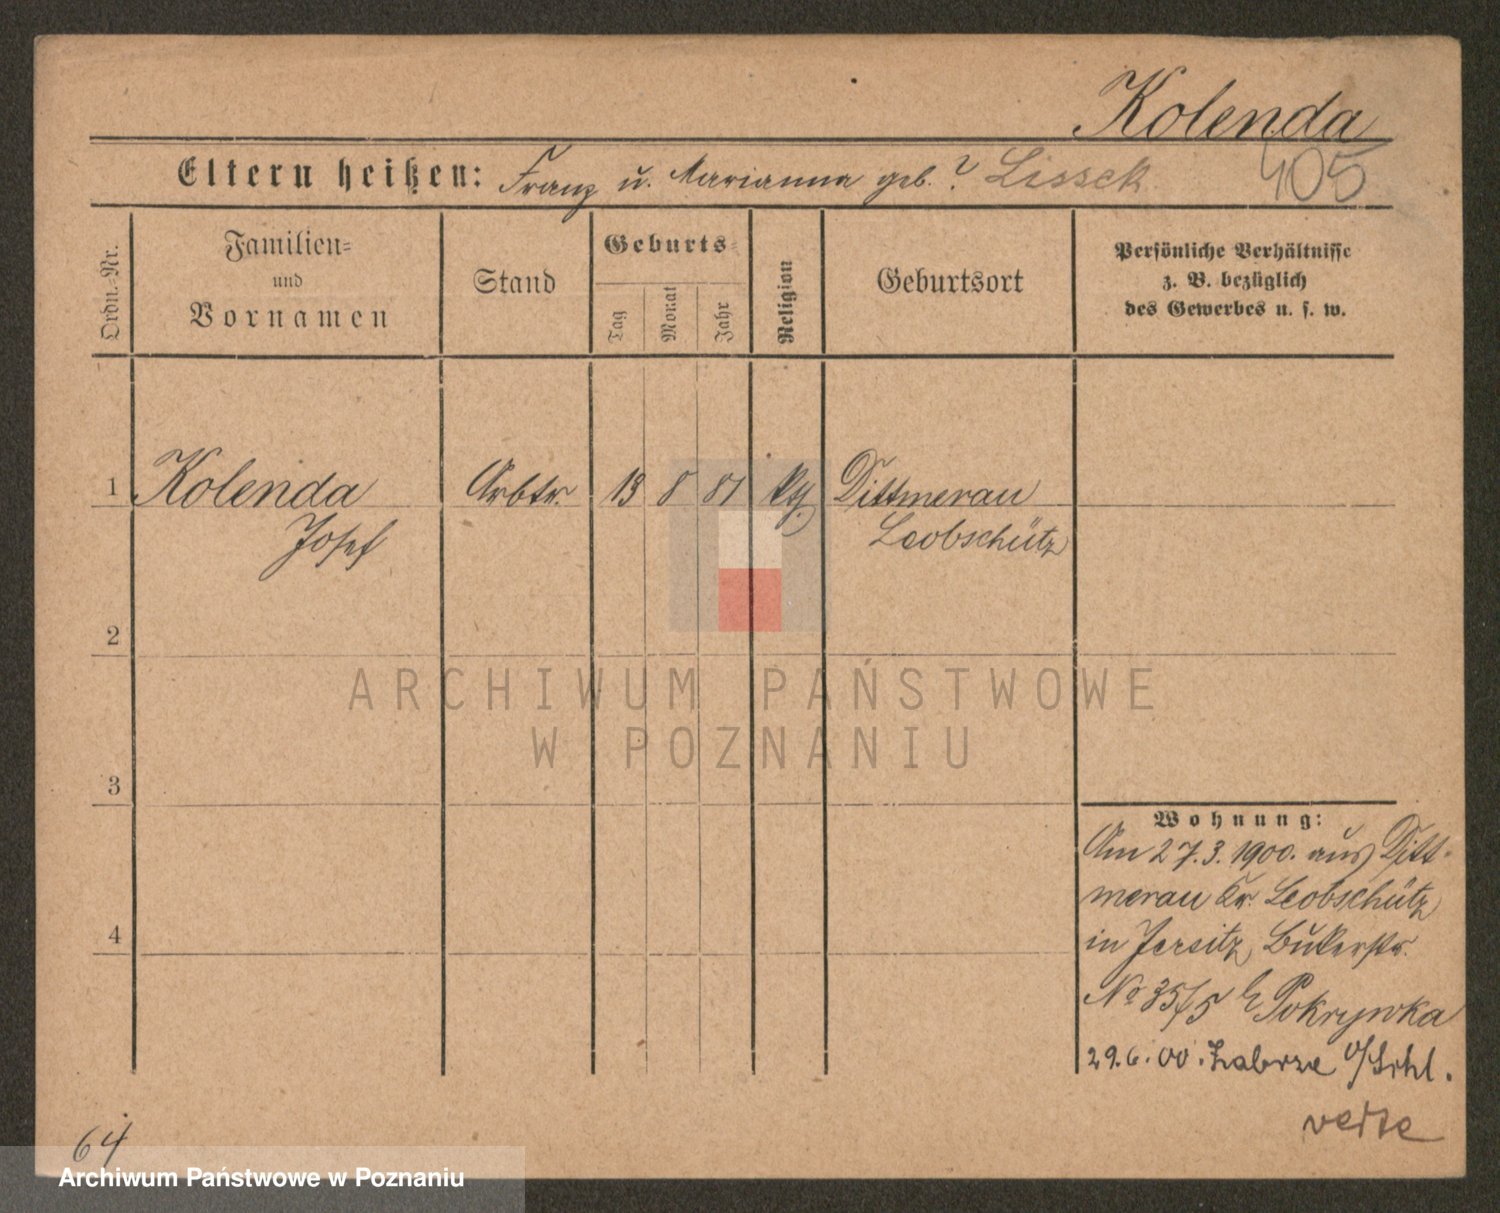 Kolenda
Eltern heißen: Franz u. Marianna geb. ? Lissek 405
Ordn.-Nr.
Familien-
und
Vornamen
Stand
Geburts-
Tag
Monat
Jahr
Religion
Geburtsort
Persönliche Verhältnisse
z. B. bezüglich
des Gewerbes u. s. w.
1 Kolenda Arbtr. 13 8 81 Dittmerau
Josef Leobschütz
2
3
4
Wohnung:
Am 27.3.1900. aus Ditt-
merau Kr. Leobschütz
in Jersitz, Bukerstr.
No 35/5 b Pokrywka
29.6.00. Zabrze O/Schl.
verte
64
ARCHIWUM PAŃSTWOWE
W POZNANIU
Archiwum Państwowe w Poznaniu